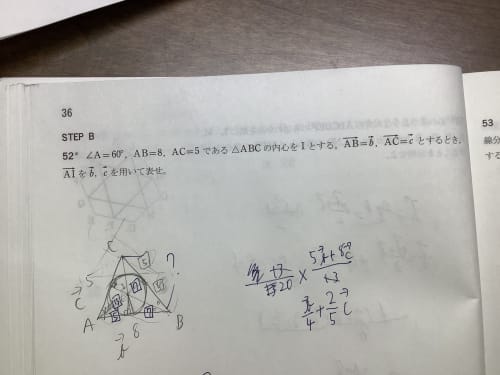 36
STEP B
52* ∠A=60°, AB=8, AC=5 である △ABC の内心を I とする。AB→=b→, AC→=c→ とするとき,
AI→ を b→, c→ を用いて表せ。
53
線分
する
C
5
5
?
c→
A
8
B
b→
20 × 5b→+8c→
13
b→/4 + 2/5 c→